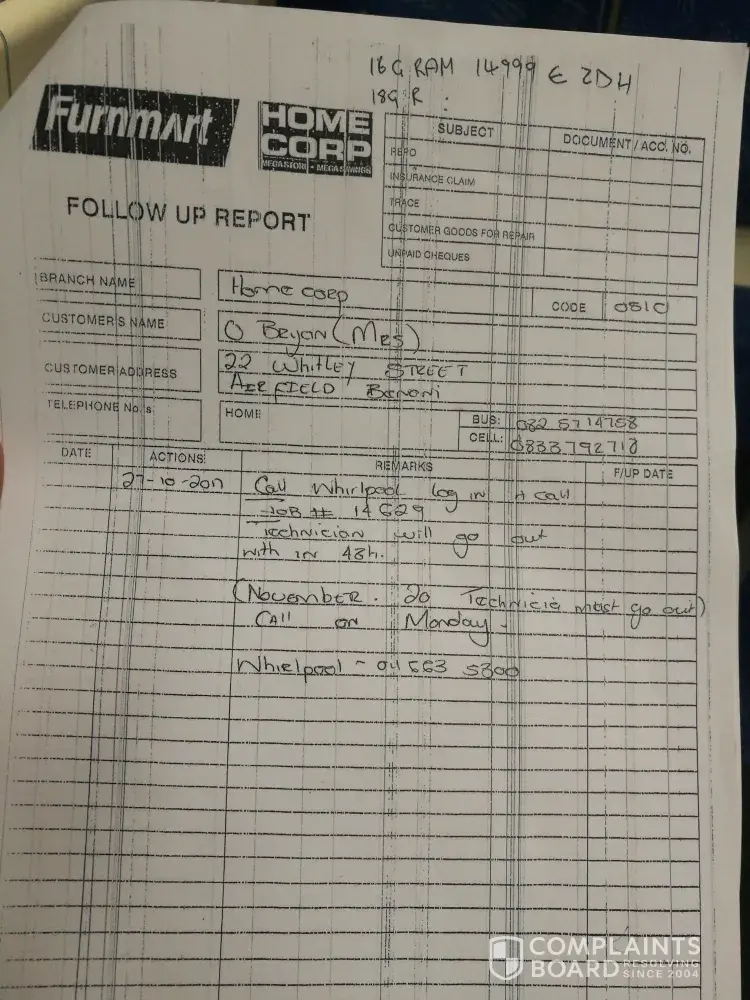 16G RAM 14999 E 2DH
18G R :
Furnmart
HOME
CORP
MEGASTORE • MEGASAVINGS
SUBJECT
DOCUMENT / ACC. NO.
REPO
INSURANCE CLAIM
TRACE
CUSTOMER GOODS FOR REPAIR
UNPAID CHEQUES
FOLLOW UP REPORT
BRANCH NAME
Home corp
CODE
0510
CUSTOMER'S NAME
O Beyan (Mrs)
CUSTOMER ADDRESS
22 Whitley STREET
AIRFIELD Benoni
TELEPHONE No.s
HOME
BUS: 082 5714758
CELL: 0833792718
DATE
ACTIONS
REMARKS
F/UP DATE
27-10-2017
Call Whirlpool log in A call
JOB # 14629
Technician will go out
with in 48h.
(November. 20 Technicia mast go out)
CALL on Monday.
Whirlpool - 011 663 5300
COMPLAINTS
BOARD RESOLVING
SINCE 2004